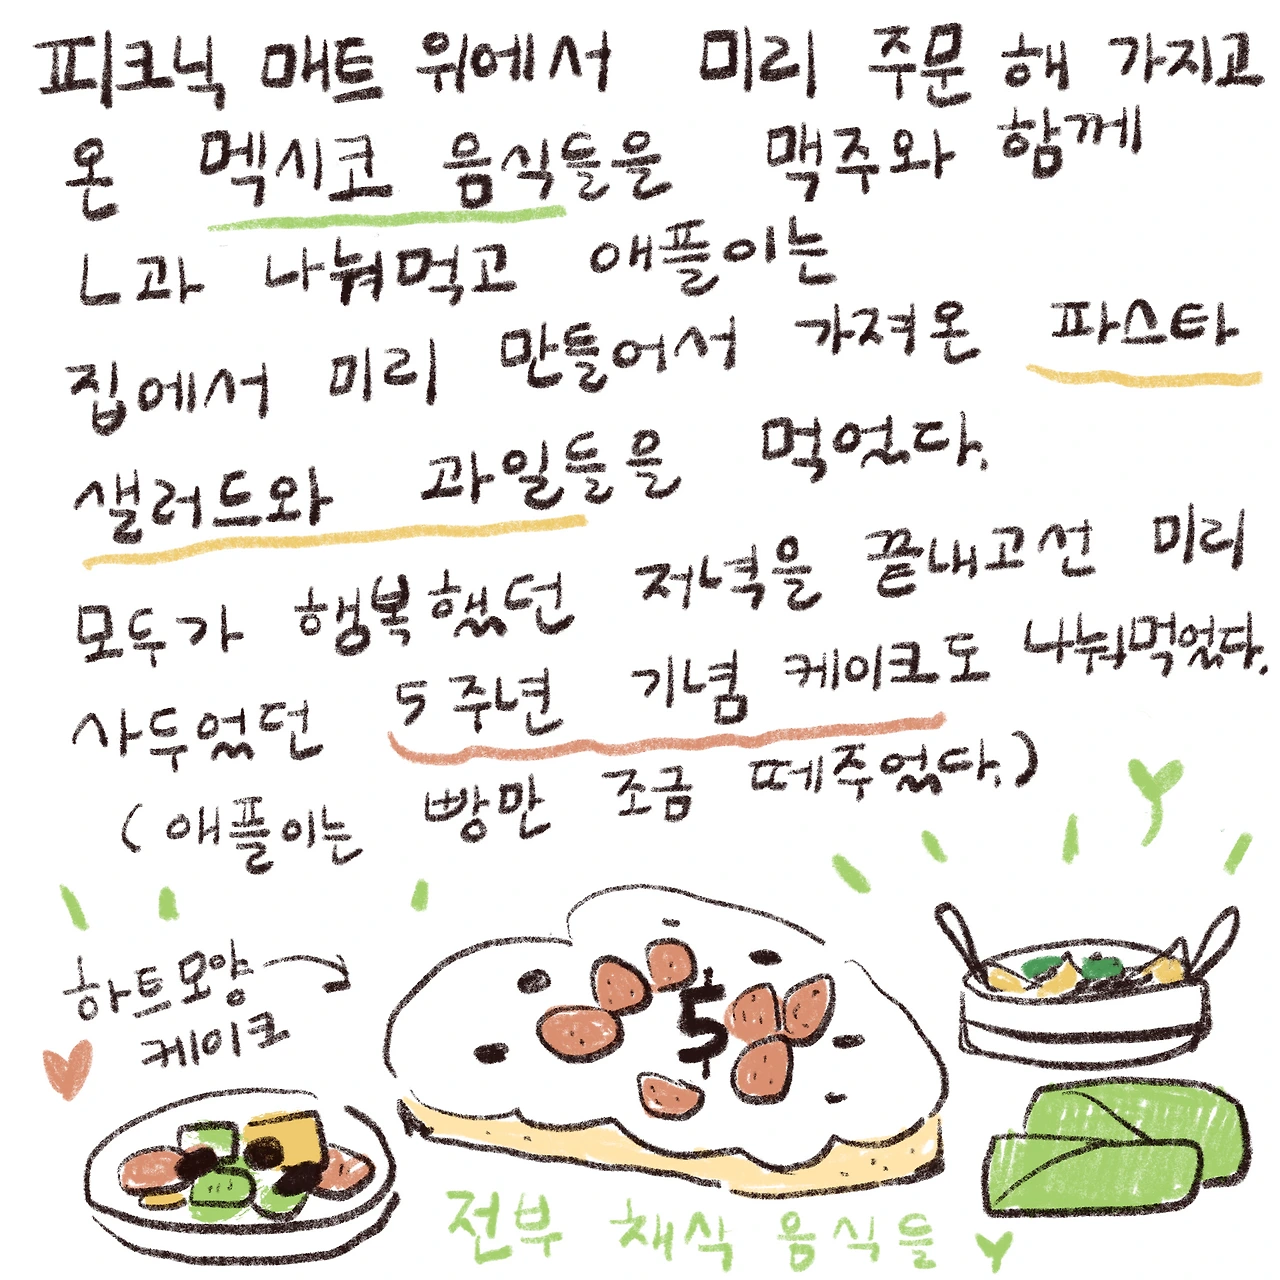 피크닉 매트 위에서 미리 주문해 가지고
온 멕시코 음식들을 맥주와 함께
L과 나눠먹고 애플이는
집에서 미리 만들어서 가져온 파스타
샐러드와 과일들을 먹었다.
모두가 행복했던 저녁을 끝내고선 미리
사두었던 5주년 기념 케이크도 나눠먹었다.
(애플이는 빵만 조금 떼주었다.)
하트모양
케이크
5
전부 채식 음식들